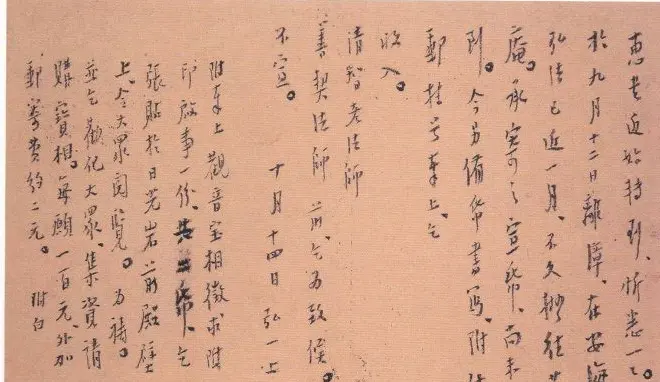 惠书近始转到、忻悉一一
於九月十二日離漳、在安海
弘法已近一月、不久擬往
庵。承寄之宣帋、尚未
到。今另備帋書寫、附
郵挂号奉上、乞
收入。
清智老法師
善契法師 前、乞为致候。
不宣。
十月十四日 弘一上
附奉上 觀音宝相徵求附
印啟事一份、共帋、乞
張貼於日光岩前殿壁
上、令大眾閱覽。为禱。
並乞勸化大眾、集資請
購寶相。每願一百元、外加
郵寄費約二元。 附白